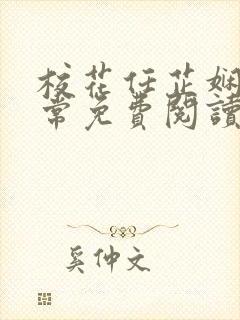 校花任芷娴
常免费阅读
奚仲文